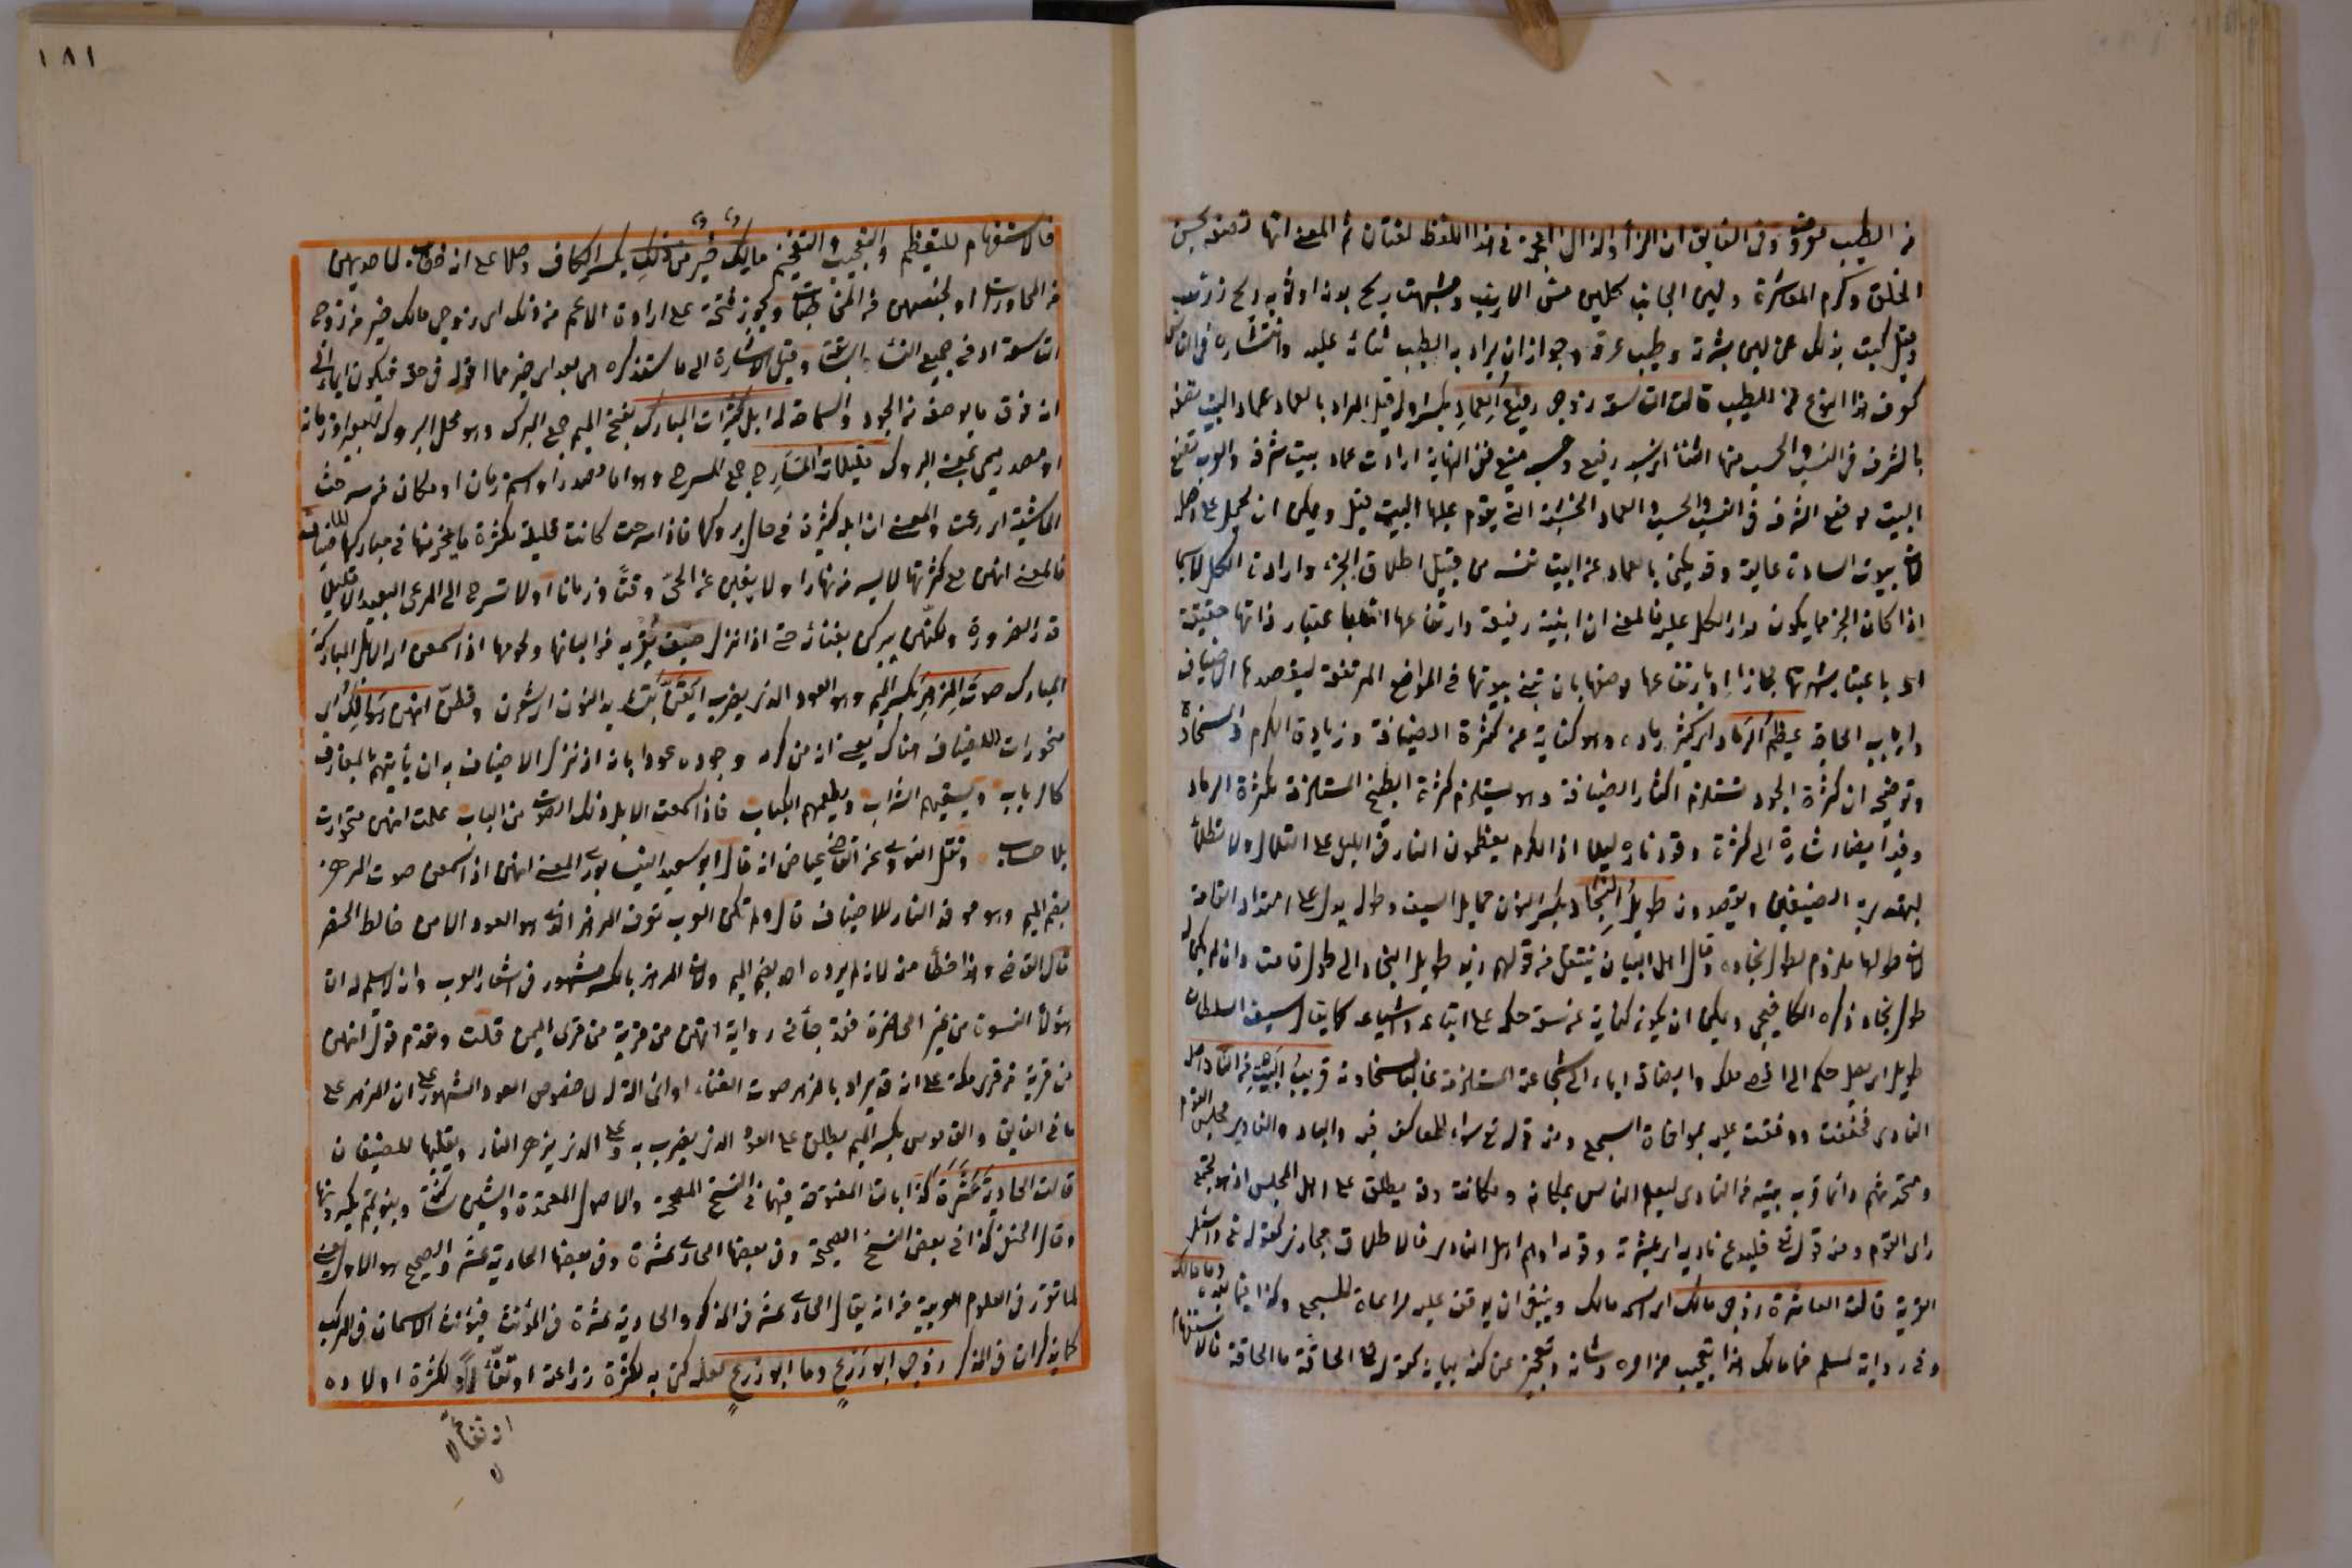 من الطيب معروف وفي الفايق ان الزاء والذال المعجمة في هذا اللفظ لغتان ثم المعنى انها تصفه بحسن
الخلق وكرم المعاشرة ولين الجانب كلين مس الارنب وشبهت ريح بدنه او ثوبه بريح زرنب
وقيل كنت بذلك عن لين بشرته وطيب عرقه وجواز ان يراد به الطيب ثنائه عليه وانتشاره في الناس
كعرف هذا النوع من الطيب قالت التاسعة زوجي رفيع العماد بكسر اوله قيل المراد بالعماد عماد البيت تصفه
بالشرف في النسب والحسب منها الثناء اي نسبه رفيع وحسبه منيع ففي النهاية ارادت عماد بيت شرفه والعرب تضع
البيت موضع الشرف في النسب والحسب والعماد الخشبة التي يقوم عليها البيت قيل ويمكن ان يحمل على اصله
لان بيوت السادة عالية وقد يكنى بالعماد عن البيت نفسه من قبيل اطلاق الجزء وارادة الكل لا سيما
اذا كان الجزء مما يكون مدار الكل عليه فالمعنى ان ابنيته رفيعة وارتفاعها اما باعتبار ذاتها حقيقة
او باعتبار شهرتها مجازا او بارتفاع موضعها بان تبنى بيوتها في المواضع المرتفعة ليقصدها الاضياف
وارباب الحاجة عظيم الرماد اي كثير رماده وهو كناية عن كثرة الضيافة وزيادة الكرم والسخاوة
وتوضيحه ان كثرة الجود تستلزم اكثار الضيافة وهو يستلزم كثرة الطبخ المستلزمة لكثرة الرماد
وفيه ايضا اشارة الى كثرة وقود ناره ليلا اذ الكرام يعظمون النار في الليل على التلال ولا تطفأ
ليهتدي به الضيفان ويقصدون طويل النجاد بكسر النون حمايل السيف وطوله يدل على امتداد القامة
لان طولها ملزوم لطول نجاده وقال اهل البيان ينتقل من قولهم زيد طويل النجاد الى طول قامته وان لم يكن له
طول نجاد ذكره الكافيجي ويمكن ان يكون كناية عن سعة حكمه على اتباعه واشياعه كما يقال سيف السلطان
طويل اي يصل حكمه الى اقصى ملكه وايضا فيه ايماء الى شجاعته المستلزمة غالبا لسخاوته قريب البيت من الناد اصله
النادي فخففت ووقفت عليه لموافاة السجع ومنه قوله تعالى سواء العاكف فيه والباد والنادي مجلس القوم
ومتحدثهم وانما قرب بيته من النادي ليعلم الناس بمكانه ومكانته وقد يطلق على اهل المجلس اذ هو مجتمع
رأي القوم ومنه قوله تعالى فليدع ناديه اي عشيرته وقومه اذ هم اهل النادي فالاطلاق مجازي كقوله تعالى واسئل
القرية قالت العاشرة زوجي مالك اي اسمه مالك وينبغي ان يوقف عليه مراعاة للسجع وكذا فيما بعده وما مالك
وفي رواية لمسلم فما مالك هذا تعجيب من امره وشانه وتعجيز عن كنه بيانه كقوله تعالى الحاقة ما الحاقة فالاستفهام
١٨١
فالاستفهام للتعظيم والتعجيب والتفخيم مالك خير من ذلك بكسر الكاف وصلا على انه خطاب لاحديهن
من المحاورات او لجنسهن من المخاطبات ويجوز فتحه على ارادة الاعم من ذلك اي زوجي مالك خير من زوج
التاسعة او من جميع النساء السابقة وقيل الاشارة الى ما ستذكره هي بعد اي خير مما اقوله في حقه فيكون ايماء الى
انه فوق ما يوصف من الجود والسماحة له ابل كثيرات المبارك بفتح الميم جمع المبرك وهو محل البروك البعير او زمانه
او مصدر ميمي بمعنى البروك قليلات المسارح جمع المسرح وهو اما مصدر او اسم زمان او مكان من سرحت
الماشية اي رعت والمعنى ان ابله كثيرة في حال بروكها فاذا سرحت كانت قليلة لكثرة ما نحر منها في مباركها للاضياف
فالمعنى انهن مع كثرتها لا يسرحن نهارا ولا يغبن عن الحي وقتا وزمانا او لا تسرح الى المرعى البعيد الا قليلا
قدر الضرورة ولكنهن يبركن بفنائه حتى اذا نزل ضيف يقربه من البانها ولحومها اذا سمعن اي الابل المباركة
المبارك صوت المزهر بكسر الميم وهو العود الذي يضرب ايقن بتشديد النون اي شعرن وفطن انهن هوالك اي
منحورات للضياف هناك يعني ان من كرمه وجوده عود ابله انه اذا نزل الاضياف به ان يأتيهم بالمعازف
كالرباب ويسقيهم الشراب ويطعمهم الكباب فاذا سمعت الابل ذلك الصوت من الباب علمت انهن منحورات
بلا حساب ونقل النووي عن القاضي عياض انه قال ابو سعيد النيسابوري المعنى انهن اذا سمعن صوت المزهر
بضم الميم وهو موقد النار للاضياف قال ولم تكن العرب تعرف المزهر الذي هو العود الا من خالط الحضر
قال القاضي وهذا خطأ منه لانه لم يروه احد بضم الميم ولان المزهر بالكسر مشهور في اشعار العرب وانه لا يسلم له ان
هؤلاء النسوة من غير الحاضرة فقد جاء في رواية انهن من قرية من قرى اليمن قلت وتقدم قول انهن
من قرية من قرى مكة على انه قد يراد بالمزهر صوت الغناء او اي آلة له لا خصوص العود المشهور على ان المزهر على
ما في الفايق والقاموس بكسر الميم يطلق على العود الذي يضرب به وعلى الذي يزهر النار ويقلبها للضيفان
قالت الحادية عشرة كذا بالتاء المفتوحة فيهما في النسخ المصححة والاصول المعتمدة والشين ساكنة وبنو تميم يكسرونها
وقال الحنفي كذا في بعض النسخ الصحيحة وفي بعضها الحادي عشرة وفي بعضها الحادية عشر والصحيح هو الاول يعني
لما تقرر في العلوم العربية من انه يقال الحادي عشر في المذكر والحادية عشرة في المؤنث فيؤنث الاسمان في المركب
كما يذكران في المذكر زوجي ابو زرع وما ابو زرع لعله كني به لكثرة زراعته او تفاؤلا لكثرة اولاده
او تفاؤلا